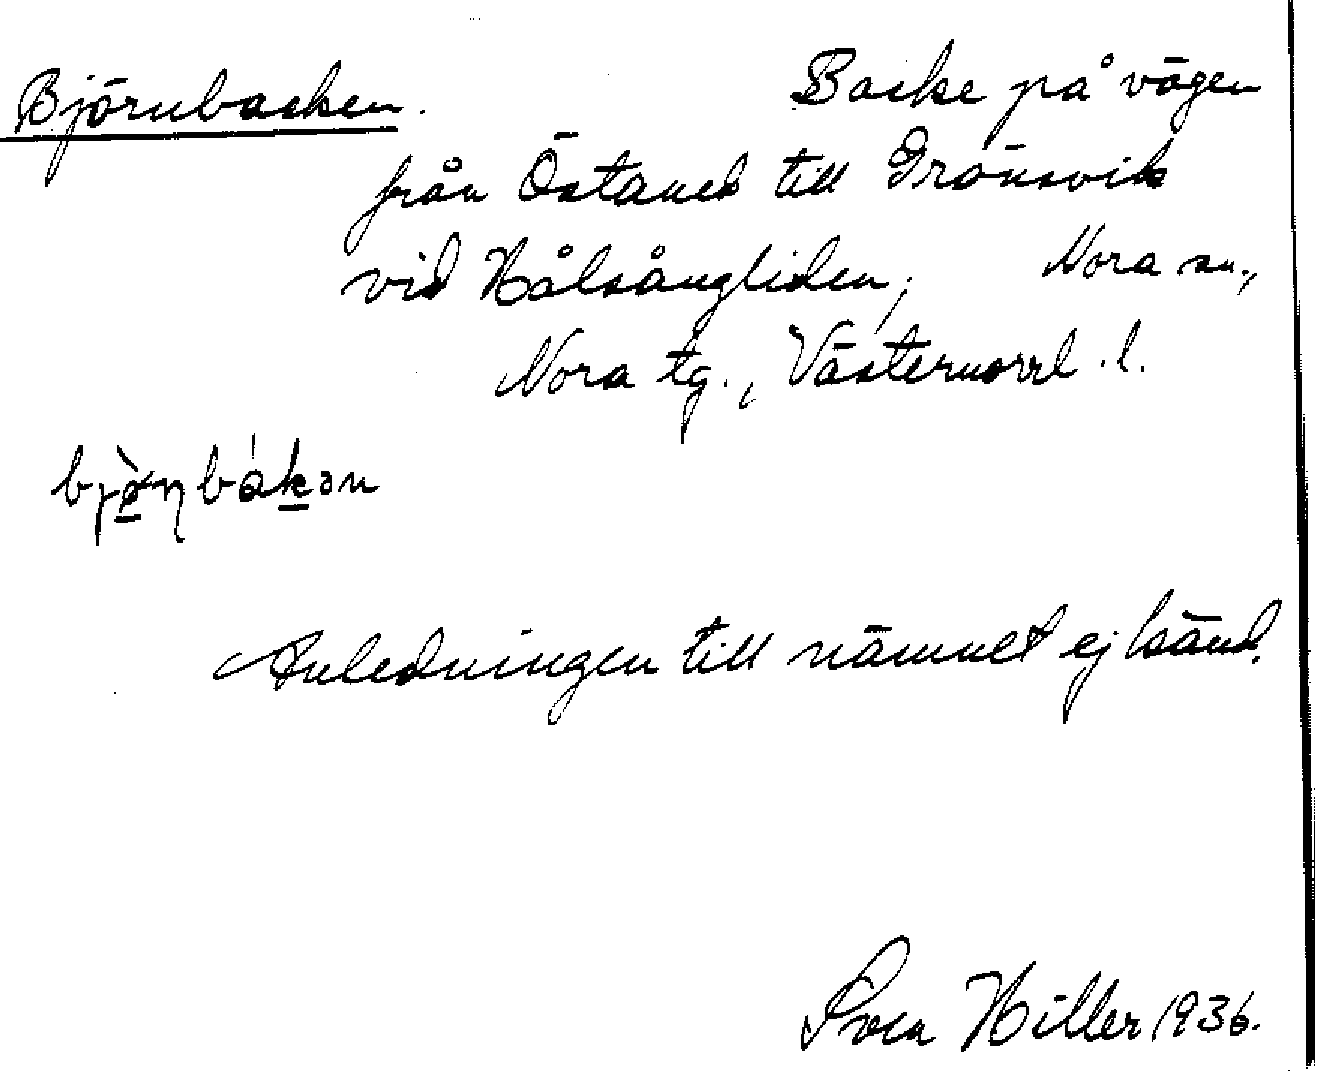 Björnbacken. Backe på vägen
från Östanek till Grönsvik
vid Hålsångliden, Nora sn.,
Nora tg., Västernorrl. l.
Anledningen till nämnet ej känd.
Sven Hiller 1936.